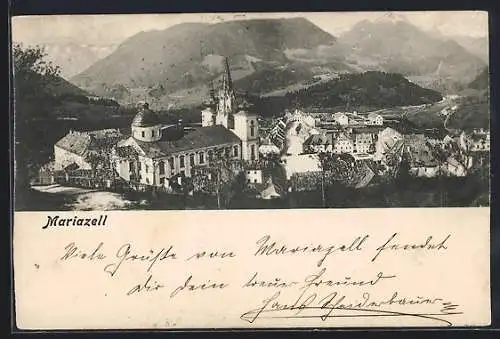 Mariazell
Viele Grüße von Mariazell sendet
Dir dein treuer Freund
Hans Scheiderbauer